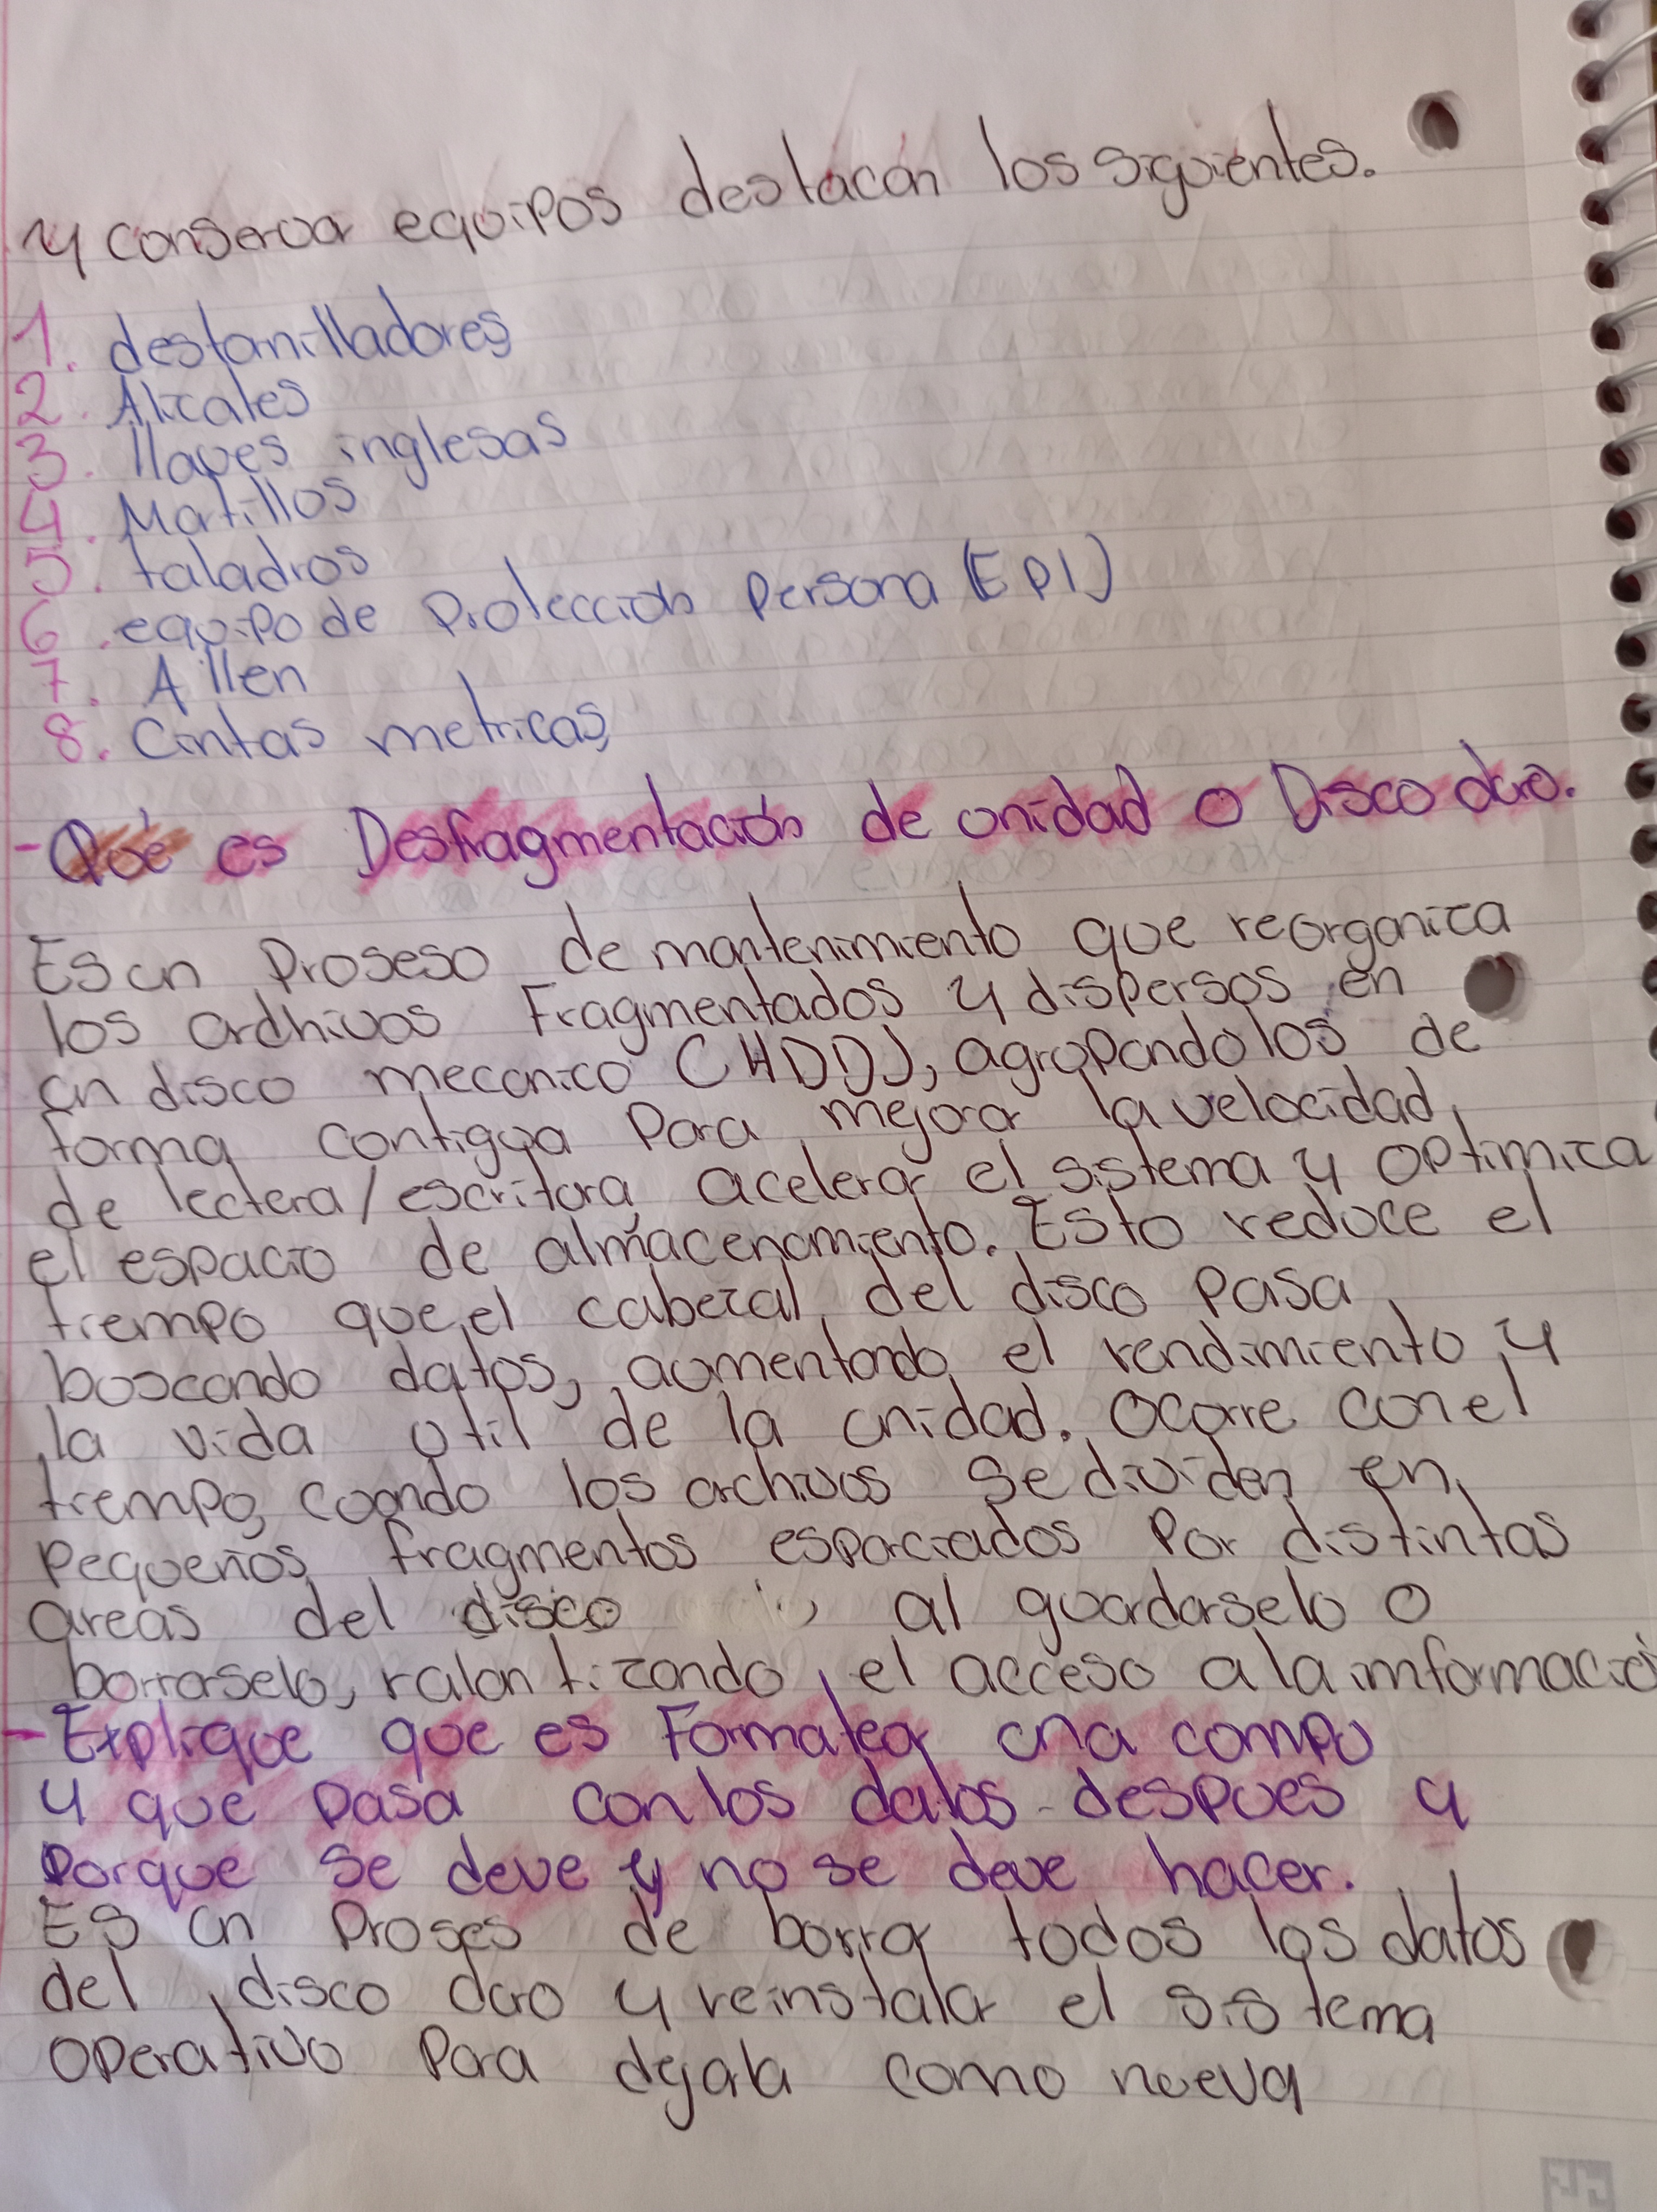 y conserva equipos destacan los siguientes.
1. destornilladores
2. Alicates
3. llaves inglesas
4. Martillos
5. taladros
6. equipo de Protección Persona (EPI)
7. Allen
8. Cintas metricas
- Qué es Desfragmentación de unidad o Disco duro.
Es un Proseso de mantenimiento que reorganiza
los ardhivos Fragmentados y dispersos en
un disco mecanico (HDD), agrupandolos de
forma contigua Para mejorar la velocidad
de lectera/escritura, acelerar el sistema y optimiza
el espacio de almacenamiento. Esto reduce el
tiempo que el cabezal del disco Pasa
buscando datos, aumentando el rendimiento y
la vida util de la unidad. Ocurre con el
tiempo, cuando los archivos se dividen en
Pequeños fragmentos esparciados Por distintas
areas del disco al guardarselo o
borrarselo, ralantizando el acceso a la imformació
- Explique que es Formatear una compu
y que pasa con los datos despues y
Porque se deve y no se deve hacer.
Es un Proses de borrar todos los datos
del disco duro y reinstalar el sistema
operativo Para dejala como nueva